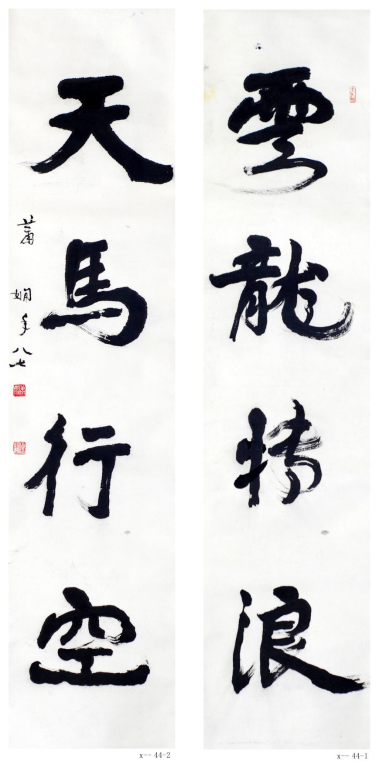 雲龍搏浪
天馬行空
蕭嫻年八七
x--44-2
x--44-1